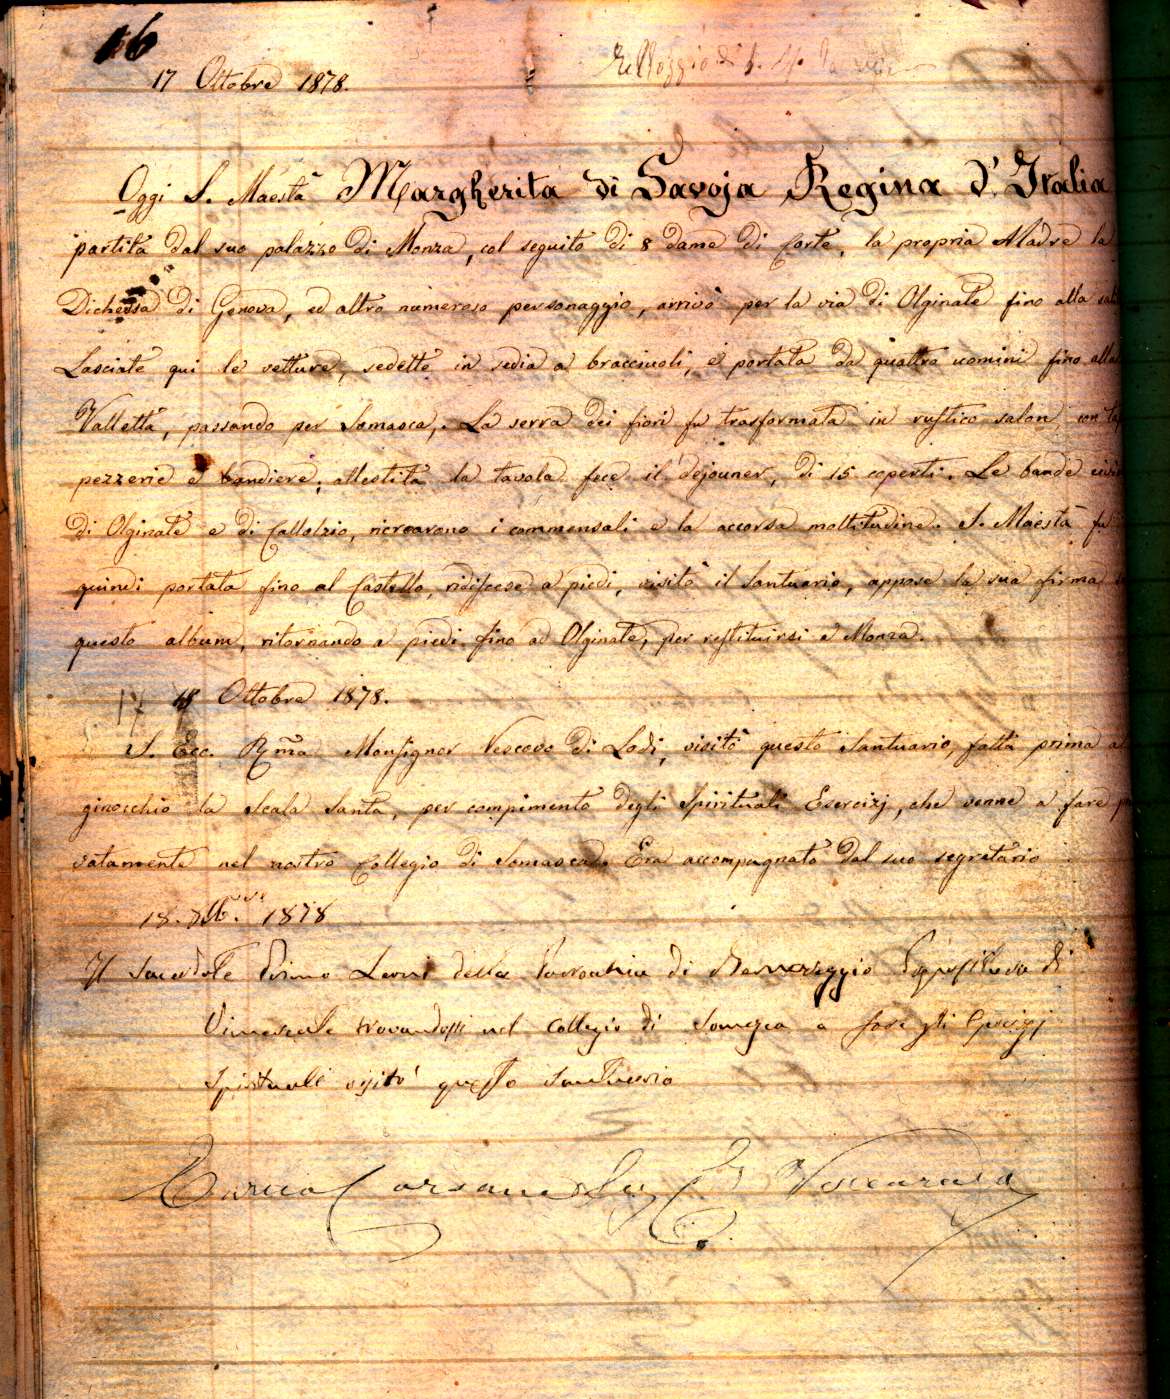 16
17 Ottobre 1878.
Oggi S. Maestà Margherita di Savoja Regina d'Italia
partita dal suo palazzo di Monza, col seguito di 8 dame di Corte, la propria Madre la
Duchessa di Genova, ed altro numeroso personaggio, arrivò per la via di Olginate fino alla
Lasciate qui le vetture, sedette in sedia a bracciuoli, e portata da quattro uomini fino alla
Valletta, passando per Somasca. La serra dei fiori fu trasformata in rustico salon, con tap
pezzerie e bandiere, allestita la tavola fece il dejouner, di 15 coperti. Le bande
di Olginate e di Callolzio, ricrearono i commensali e la accorsa moltitudine. S. Maestà fu
quindi portata fino al Castello, ridiscese a piedi, visitò il Santuario, appose la sua firma
questo album, ritornando a piedi fino ad Olginate, per restituirsi a Monza.
17 18 Ottobre 1878.
S. Ecc. Rma Monsignor Vescovo di Lodi, visitò questo Santuario, fatta prima
ginocchio la Scala Santa, per compimento degli Spirituali Esercizj, che venne a fare
vatamente nel nostro Collegio di Somasca. Era accompagnato dal suo segretario
18. 1878
Il Sacerdote Primo Leoni della Parrochia di Bernareggio di
Vimercate trovandosi nel Collegio di Somasca a fare gli Esercizj
Spirituali visitò questo Santuario